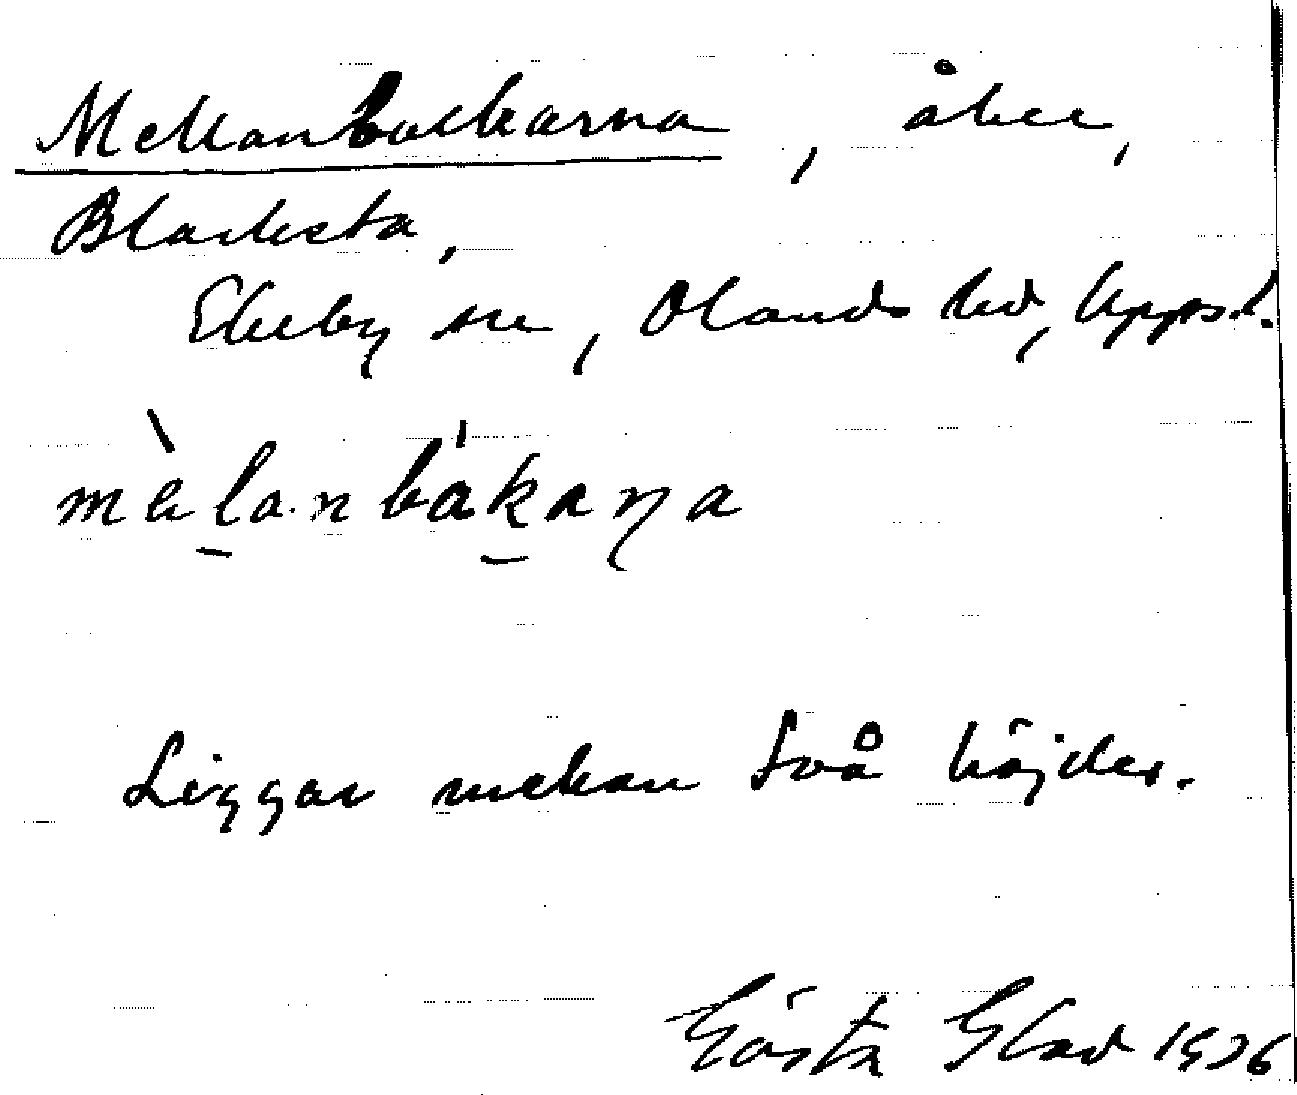 Mellanbackarna, åker,
Blacksta,
Ekeby sn, Olands hd, Upps. l.
mèlanbákaṇa
Ligger mellan två höjder.
Gösta Glad 1936